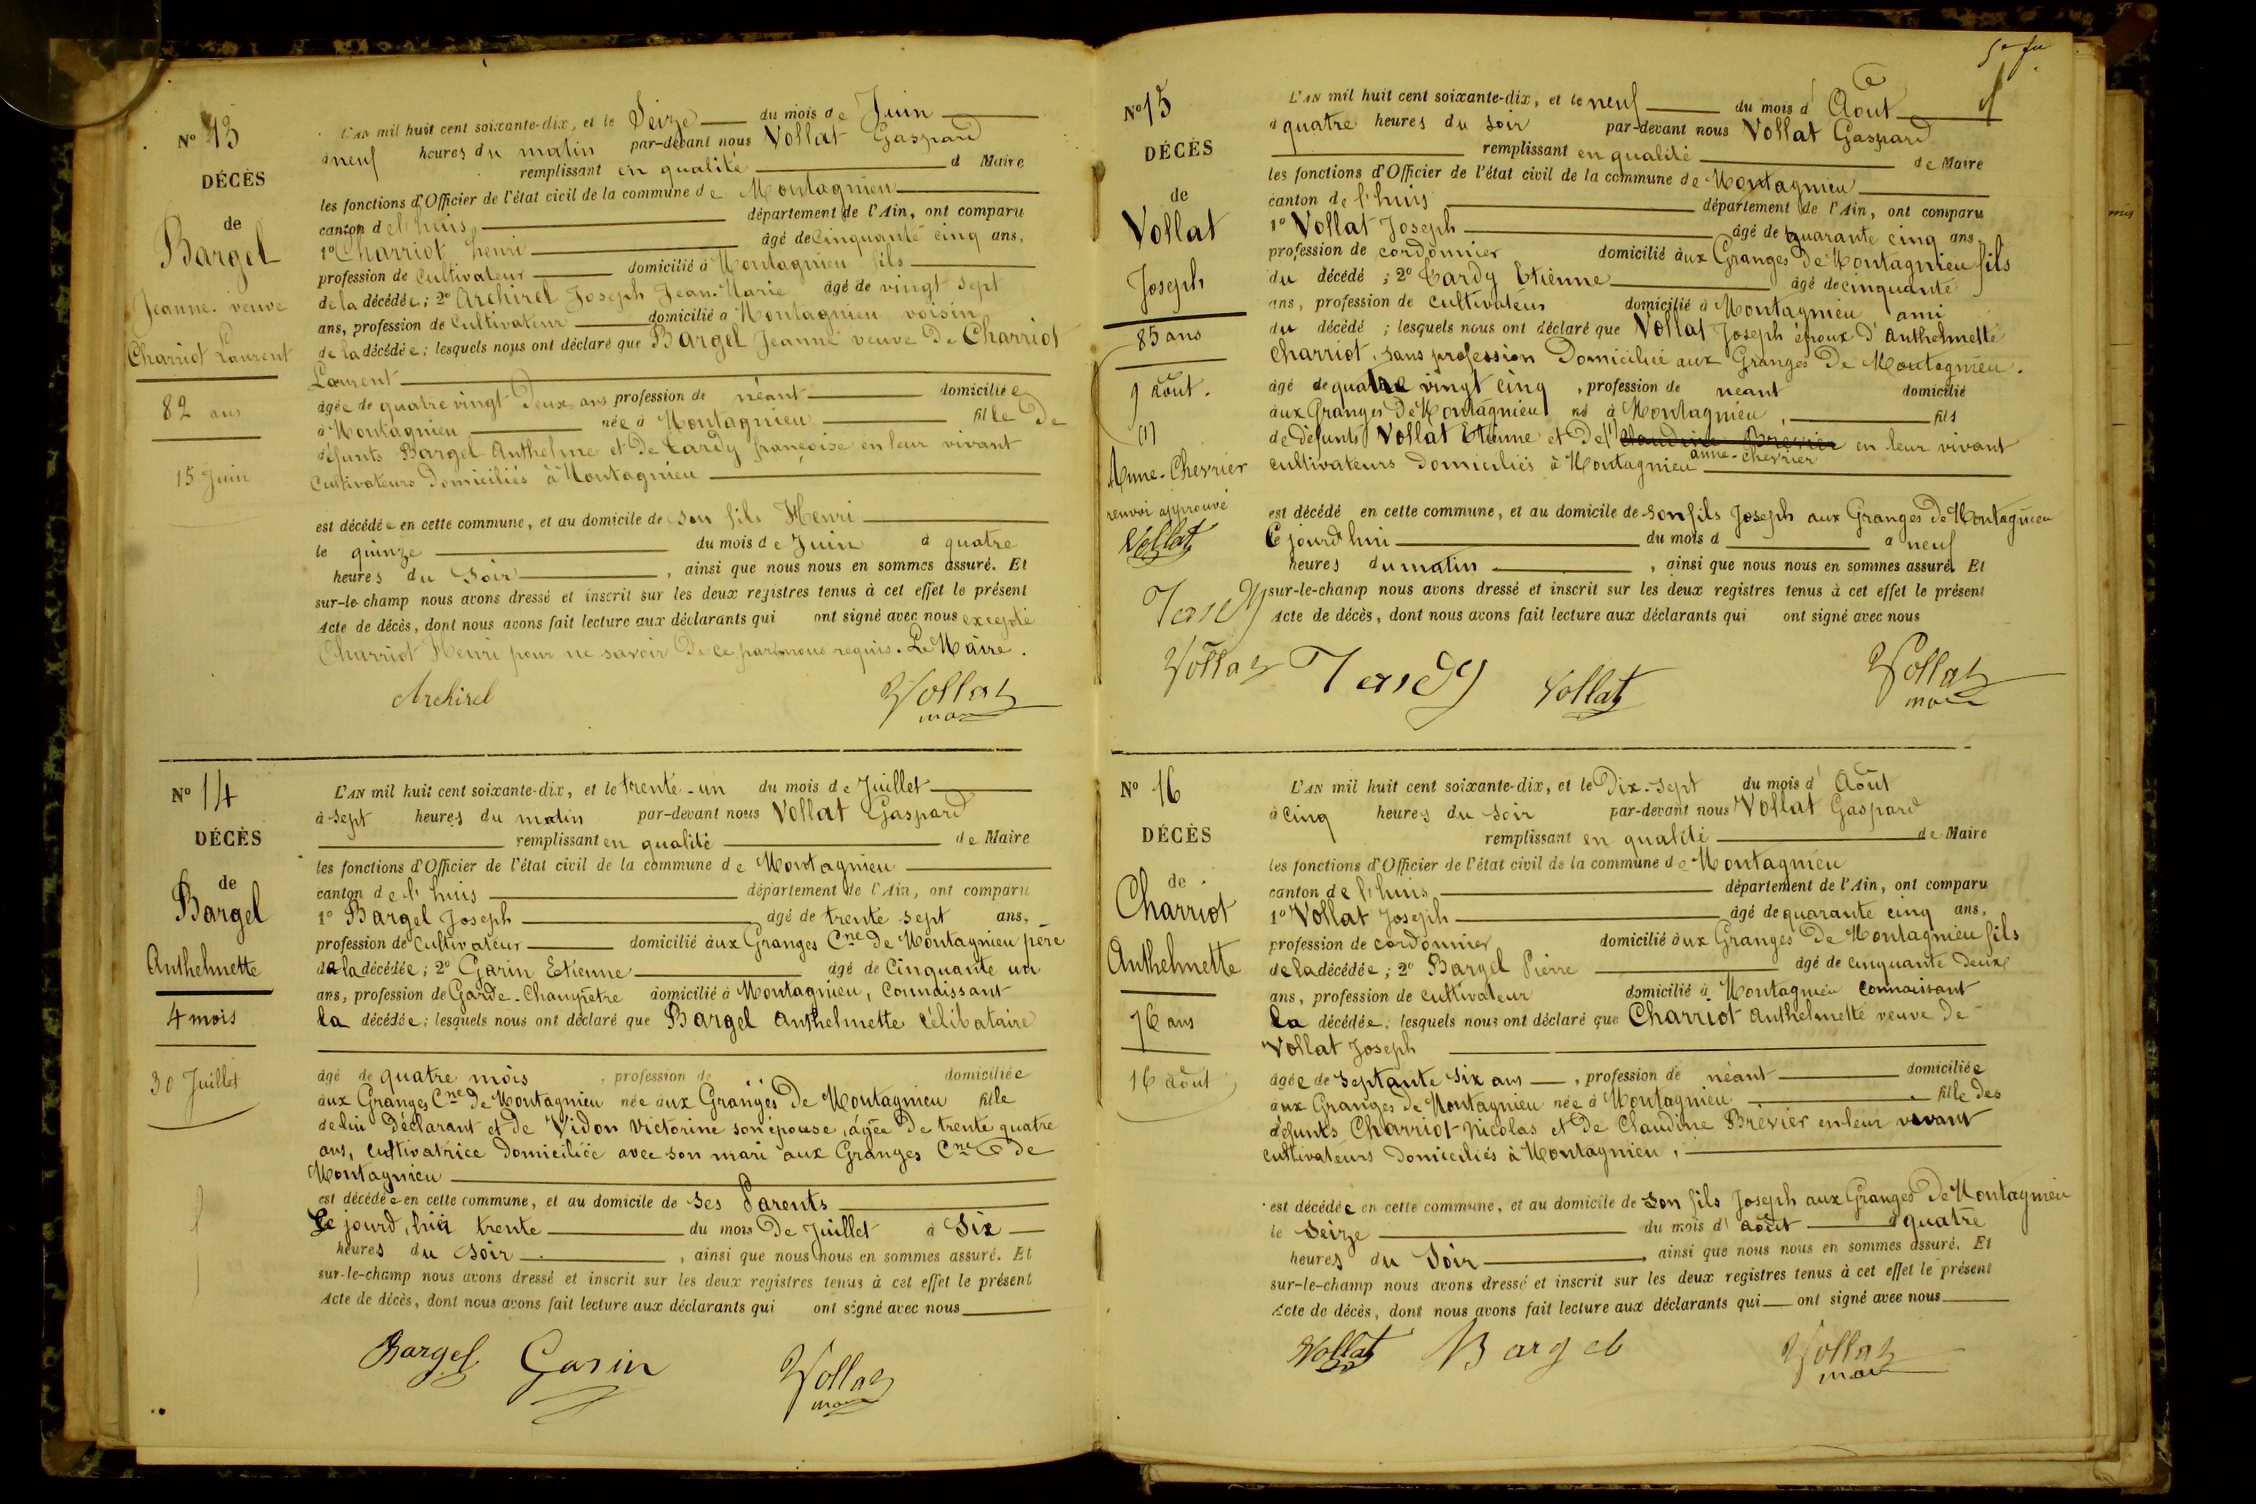 N° 13
DÉCÈS
de
Bargel
Jeanne. veuve
Charriot Laurent
82 ans
15 Juin
L'AN mil huit cent soixante-dix, et le Seize du mois de Juin
à neuf heures du matin par-devant nous Vollat Gaspard
remplissant en qualité d Maire
les fonctions d'Officier de l'état civil de la commune de Montagnieu
canton de l'huis département de l'Ain, ont comparu
1° Charriot henri âgé de Cinquante cinq ans,
profession de Cultivateur domicilié à Montagnieu fils
de la décédée; 2° Archirel Joseph Jean-Marie âgé de vingt sept
ans, profession de Cultivateur domicilié à Montagnieu voisin
de la décédée; lesquels nous ont déclaré que Bargel Jeanne veuve De Charriot
Laurent
âgée de quatre vingt Deux ans profession de néant domiciliée
à Montagnieu née à Montagnieu fille De
défunts Bargel Anthelme et De Tardy françoise en leur vivant
Cultivateurs Domiciliés à Montagnieu
est décédée en cette commune, et au domicile de son fils Henri
le quinze du mois de Juin à quatre
heures du Soir, ainsi que nous nous en sommes assuré. Et
sur-le-champ nous avons dressé et inscrit sur les deux registres tenus à cet effet le présent
Acte de décès, dont nous avons fait lecture aux déclarants qui ont signé avec nous excepté
Charriot Henri pour ne savoir De ce par nous requis. Le Maire.
Archirel Vollat
N° 14
DÉCÈS
de
Bargel
Anthelmette
4 mois
30 Juillet
L'AN mil huit cent soixante-dix, et le trente-un du mois de Juillet
à sept heures du matin par-devant nous Vollat Gaspard
remplissant en qualité de Maire
les fonctions d'Officier de l'état civil de la commune de Montagnieu
canton de l'huis département de l'Ain, ont comparu
1° Bargel Joseph âgé de trente sept ans,
profession de Cultivateur domicilié aux Granges Cne de Montagnieu père
de la décédée; 2° Garin Etienne âgé de Cinquante un
ans, profession de Garde-Champêtre domicilié à Montagnieu, Connaissant
la décédée; lesquels nous ont déclaré que Bargel Anthelmette Célibataire
âgé de quatre mois, profession de domiciliée
aux Granges Cne De Montagnieu née aux Granges De Montagnieu fille
de lui Déclarant et de Vidon Victorine son épouse, âgée De trente quatre
ans, cultivatrice Domiciliée avec son mari aux Granges Cne De
Montagnieu
est décédée en cette commune, et au domicile de ses Parents
Le jourd'hui trente du mois De Juillet à Six
heures du soir, ainsi que nous nous en sommes assuré. Et
sur-le-champ nous avons dressé et inscrit sur les deux registres tenus à cet effet le présent
Acte de décès, dont nous avons fait lecture aux déclarants qui ont signé avec nous
Bargel Garin Vollat
N° 15
DÉCÈS
de
Vollat
Joseph
85 ans
9 Août.
(1)
Anne-Chevrier
renvoi approuvé
Vollat
Tardy
Vollat
L'AN mil huit cent soixante-dix, et le neuf du mois d'Août
à quatre heures du soir par-devant nous Vollat Gaspard
remplissant en qualité de Maire
les fonctions d'Officier de l'état civil de la commune de Montagnieu
canton de l'huis département de l'Ain, ont comparu
1° Vollat Joseph âgé de quarante cinq ans,
profession de cordonnier domicilié aux Granges De Montagnieu fils
du décédé; 2° Tardy Etienne âgé de cinquante
ans, profession de cultivateur domicilié à Montagnieu ami
du décédé; lesquels nous ont déclaré que Vollat Joseph époux d'Anthelmette
Charriot, sans profession Domicilié aux Granges De Montagnieu.
âgé de quatre vingt cinq, profession de néant domicilié
aux Granges De Montagnieu né à Montagnieu, fils
de Défunts Vollat Etienne et De (1) Claudine Brévier en leur vivant
anne-Chevrier
cultivateurs Domiciliés à Montagnieu
est décédé en cette commune, et au domicile de son fils Joseph aux Granges De Montagnieu
Ce jourd'hui du mois d à neuf
heures du matin, ainsi que nous nous en sommes assuré. Et
sur-le-champ nous avons dressé et inscrit sur les deux registres tenus à cet effet le présent
Acte de décès, dont nous avons fait lecture aux déclarants qui ont signé avec nous
Tardy Vollat Vollat
N° 16
DÉCÈS
de
Charriot
Anthelmette
76 ans
16 août
L'AN mil huit cent soixante-dix, et le Dix-sept du mois d'Août
à cinq heures du soir par-devant nous Vollat Gaspard
remplissant en qualité de Maire
les fonctions d'Officier de l'état civil de la commune de Montagnieu
canton de l'huis département de l'Ain, ont comparu
1° Vollat Joseph âgé de quarante cinq ans,
profession de cordonnier domicilié aux Granges De Montagnieu fils
de la décédée; 2° Bargel Pierre âgé de cinquante Deux
ans, profession de cultivateur domicilié à Montagnieu connaissant
la décédée; lesquels nous ont déclaré que Charriot Anthelmette veuve De
Vollat Joseph
âgée de septante six ans, profession de néant domiciliée
aux Granges De Montagnieu née à Montagnieu fille des
défunts Charriot Nicolas et De Claudine Brévier en leur vivant
cultivateurs Domiciliés à Montagnieu,
est décédée en cette commune, et au domicile de son fils Joseph aux Granges De Montagnieu
le Seize du mois d'août à quatre
heures du Soir, ainsi que nous nous en sommes assuré. Et
sur-le-champ nous avons dressé et inscrit sur les deux registres tenus à cet effet le présent
Acte de décès, dont nous avons fait lecture aux déclarants qui ont signé avec nous
Vollat Bargel Vollat